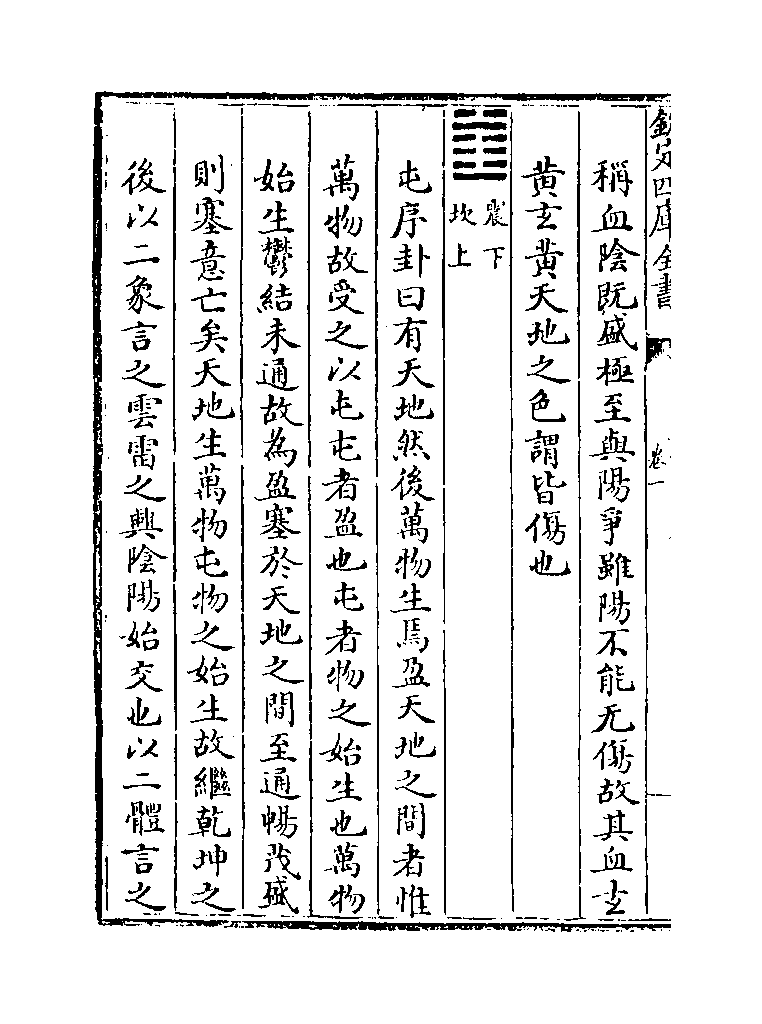 欽定四庫全書
卷一
稱血陰既盛極至與陽爭雖陽不能无傷故其血玄
黄玄黄天地之色謂皆傷也
震下
坎上
屯序卦曰有天地然後萬物生焉盈天地之間者惟
萬物故受之以屯屯者盈也屯者物之始生也萬物
始生鬱結未通故為盈塞於天地之間至通暢茂盛
則塞意亡矣天地生萬物屯物之始生故繼乾坤之
後以二象言之雲雷之興陰陽始交也以二體言之